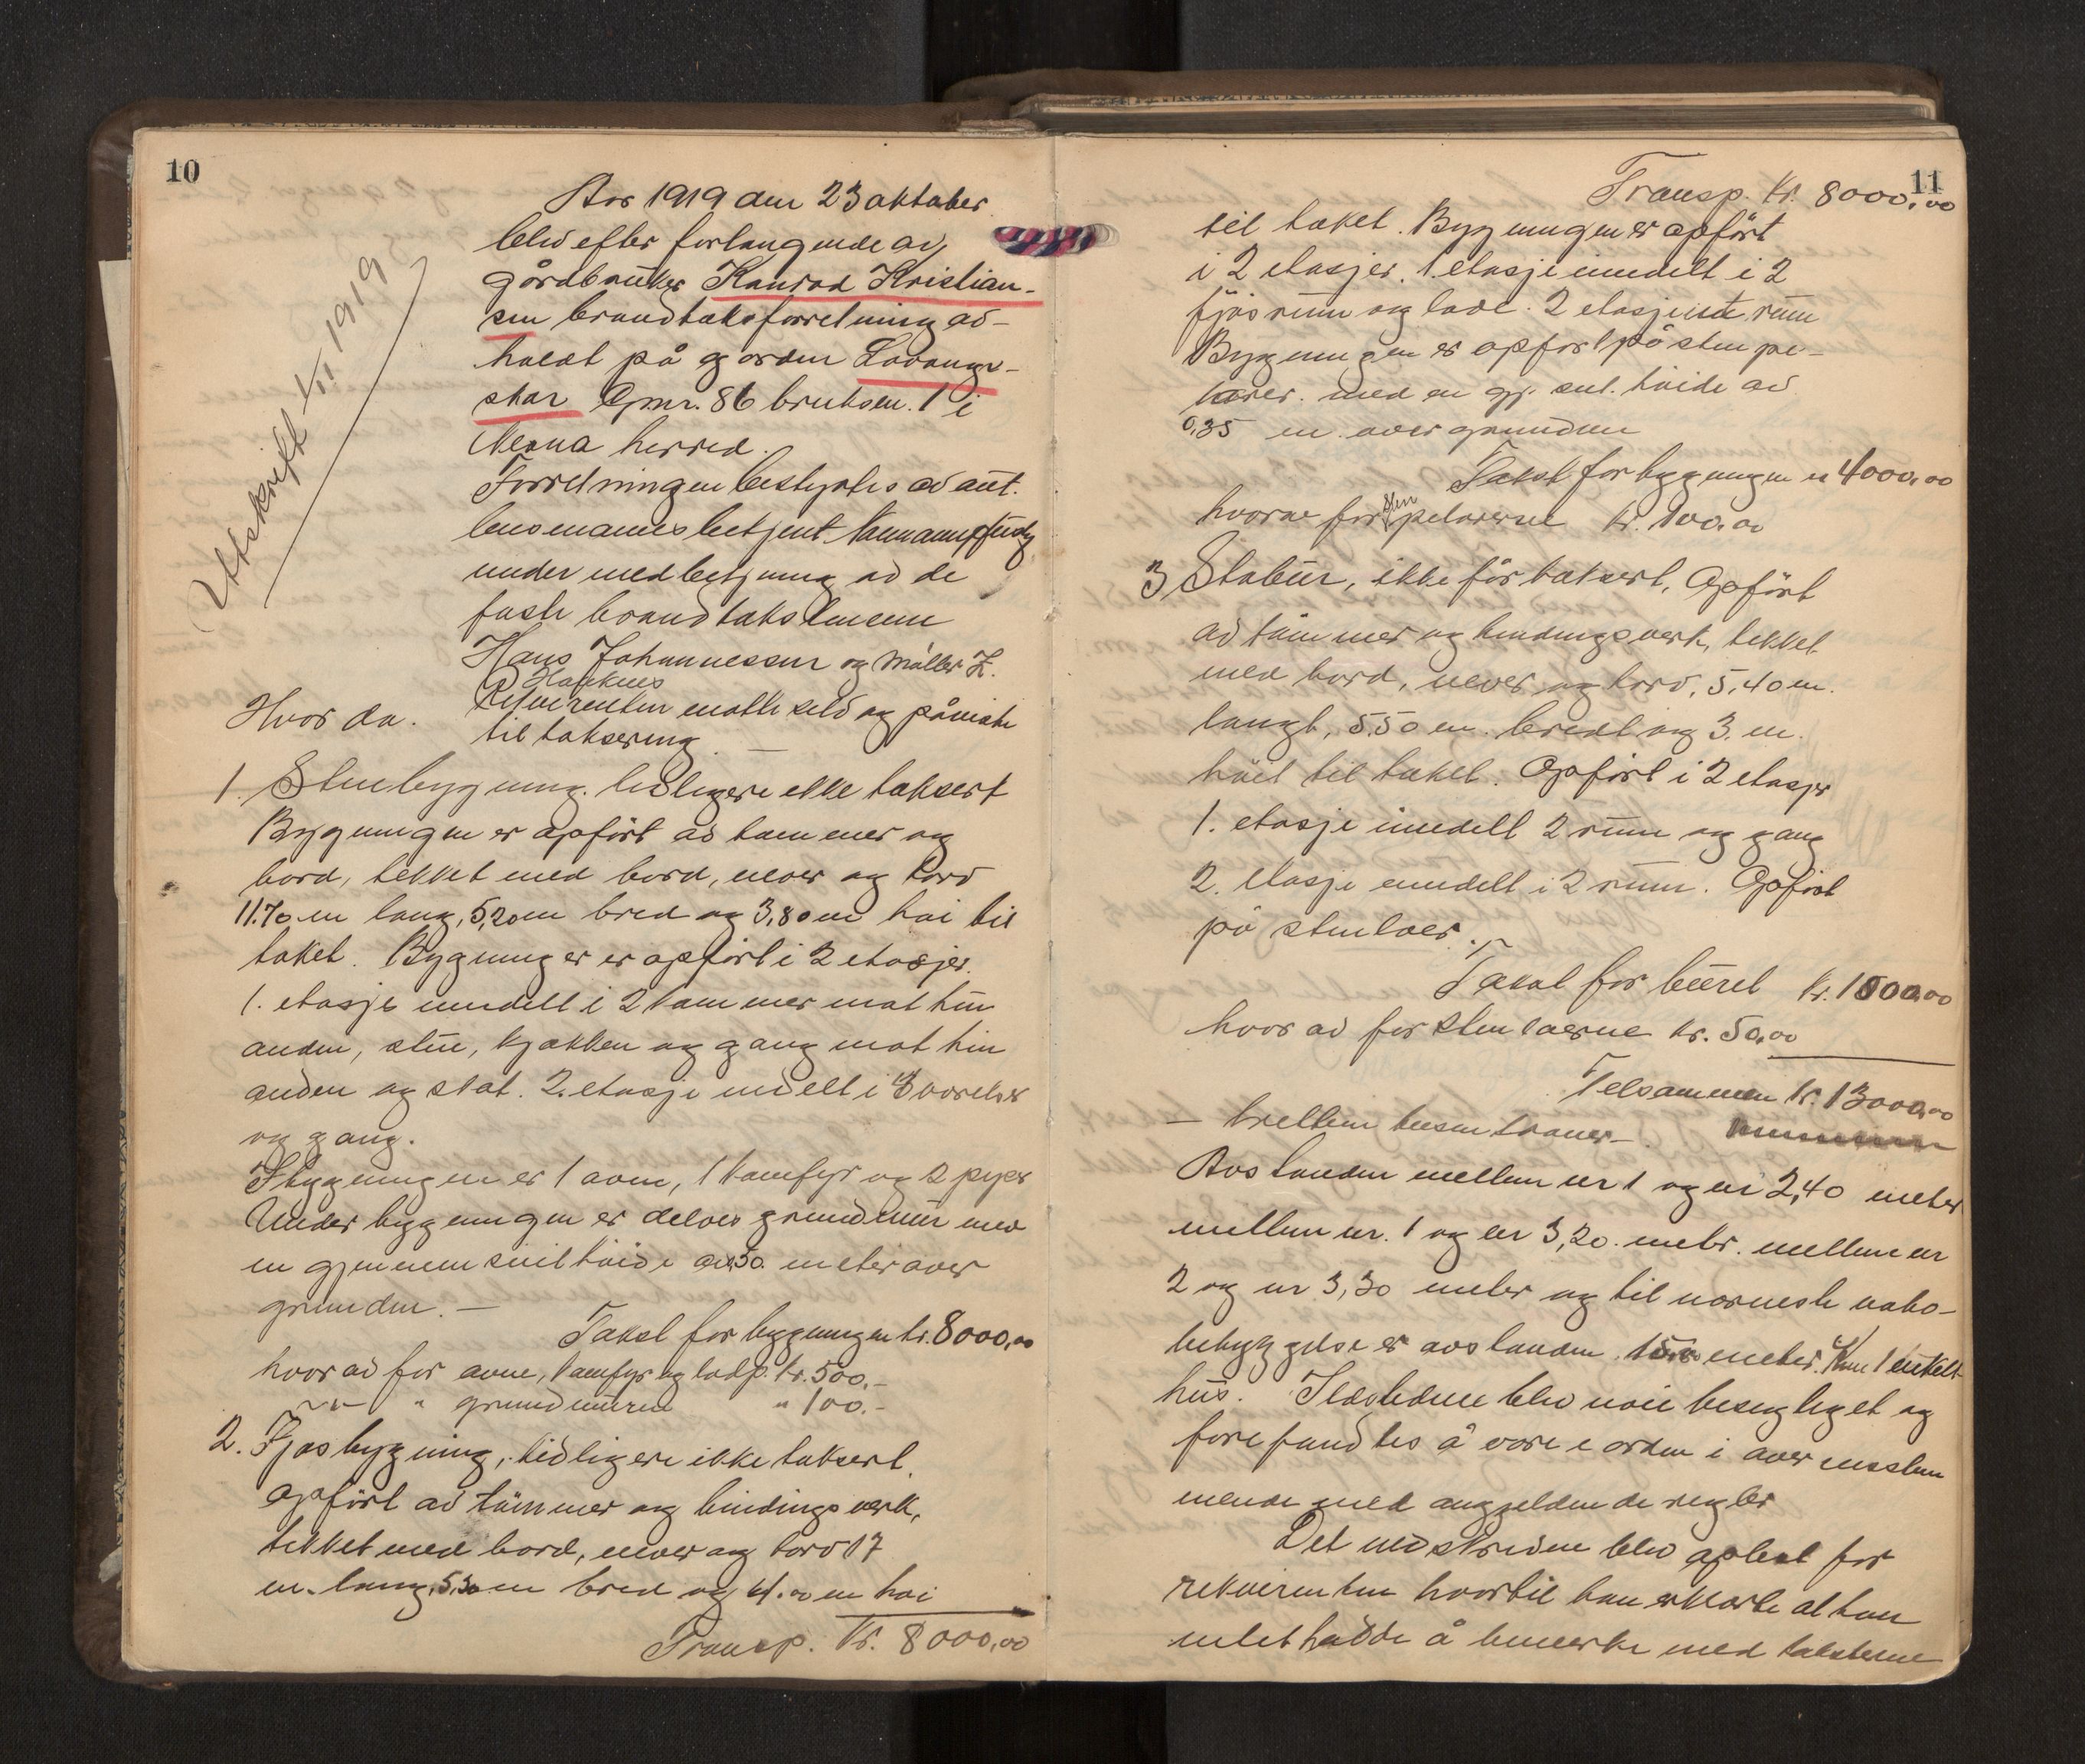 10
Utskrift 1/11 1919
Aar 1919 den 23 oktober
blev efter forlangende av
gårdbruker Konrad Kristian-
sen brandtaksforretning av-
holdt på gården Lavangs-
skar Gnr. 86 bruksn. 1 i
herred.
Forretningen bestyrtes av aut.
lensmannsbetjent
under medbetjening av de
faste brandtakstmenn
Hans Johannessen og Møller Z.
Hvor da.
Rekvirenten møtte selv og påviste
til taksering. —
1. Stuebygning. tidligere ikke taksert
Bygningen er opført av tømmer og
bord, tekket med bord, never og torv
11.70 m lang, 5,20 m bred og 3,80 m høi til
taket. Bygninger er opført i 2 etasjer.
1. etasje inndelt i 2 kammer mot hin
anden, stue, kjøkken og gang mot hin
anden og skot. 2. etasje indelt i 3 værelser
og gang.
I bygningen er 1 ovn, 1 komfyr og 2 piper
Under bygningen er delvis grundmur med
en gjennemsnitshøide av 0,50 meter over
grunden. —
Takst for bygningen kr. 8000,00
hvorav for ovne, komfyr og kr. 500.-
— " — " grundmuren " 100.-
2. Fjøsbygning, tidligere ikke taksert.
opført av tømmer og bindingsverk,
tekket med bord, never og torv 17
m. lang, 5,30 m bred og 4.00 m høi
Transp. Kr. 8000,00
11
Transp. Kr. 8000,00
til taket. Bygningen er opført
i 2 etasjer. 1. etasje inndelt i 2
fjøsrum og lade. 2 etasje ett rum
Bygningen er opført på sten pe-
larer. med en gj. snt. høide av
0,35 m. over grunden
Takst for bygningen kr 4000,00
hvorav for sten pelarerne kr. 100,00
3 Stabur, ikke før taksert, Opført
av tømmer og bindingsverk, tekket
med bord, never og torv, 5,40 m.
langt, 5.50 m. bredt og 3. m.
høit til taket. Opført i 2 etasjer
1. etasje inndelt 2 rum og gang
2. etasje inndelt i 2 rum. Opført
på stenloer.
Takst for buret kr. 1000,00
hvorav for stenloerne kr. 50,00
Tilsammen kr. 13000,00
— tretten tusen kroner —.
Avstanden mellem nr 1 og nr 2, 40 meter
mellem nr. 1 og nr 3, 20. meter. mellem nr
2 og nr 3, 30 meter og til nærmeste nabo-
bebyggelse er avstanden meter. Kun 1 enkelt
hus. Ildstedene blev nøie besigtiget og
forefandtes å være i orden i overensstem
mende med angjeldende regler
Det nedskrevne blev oplest for
rekvirenten hvortil han erklærte at han
intet hadde å bemerke med taksterne